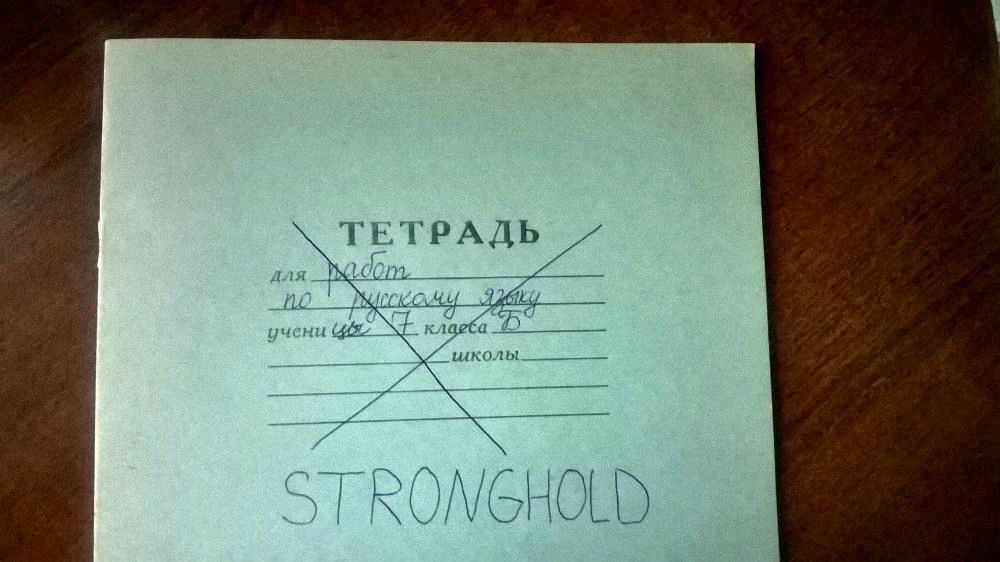 ТЕТРАДЬ
для работ
по русскому языку
ученицы 7 класса Б
школы
STRONGHOLD